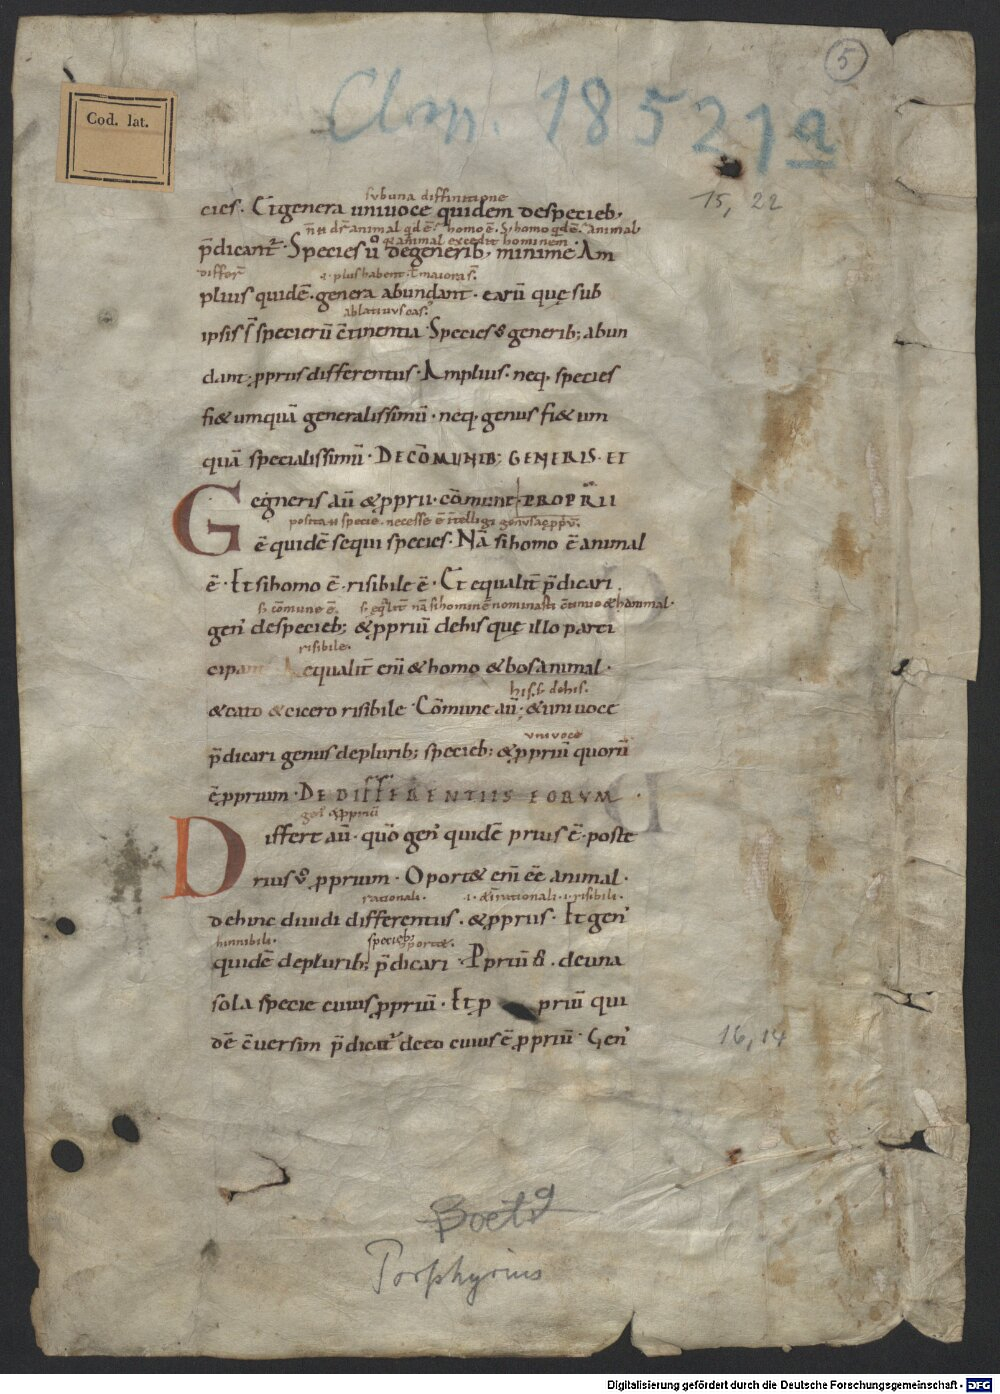 5
Clm. 18521a
Cod. lat.
15, 22
sub una diffinitione
cies. Et genera univoce quidem despecieb;
p̄dicant᷑. Species ū degenerib; minime Am
differ̄
plius quidē. genera abundant. earū quę sub
ablativus cas.
ipsis s̄ specierū c̄tinentia. Species ū generib; abun
dant; ꝓpriis differentiis. Amplius. neq; species
fi& umquā generalissimū. neq; genus fi& um
quā specialissimū. DE CŌMUNIB; GENERIS. ET
PROPRII
Gegneris aū &ꝓprii. cōmune
posita .n. specie. necesse ē
ē quidē sequi species. Nā si homo ē animal
ē. Et si homo ē. risibile ē. Et equalit̄ p̄dicari
s. cōmune ē.
gen᷒ despecieb; &ꝓpriū dehis quę illo parti
risibile.
cipant equalit̄ eni᷒ & homo & bos animal.
his. s. dehis.
& cato & cicero risibile. Cōmune aū; & univoce
univoce
p̄dicari genus depluribus; specieb; &ꝓpriū quorū
ē ꝓprium. DE DIFFERENTIIS EORUM
gen᷒ &ꝓpriū
Differt aū. quō gen᷒ quidē prius ē. poste
rius ū ꝓprium. Oport& enī eē animal.
rationali. .i. &irrationali .i. risibili.
dehinc dividi differentiis. &ꝓpriis. Et gen᷒
hinnibili. specieb;
quidē de plurib; p̄dicari. Ꝓpriū ū. de una
sola specie cuius ꝓpriū. Et ꝓ priū qui
dē c̄versim p̄dicat᷑ de eo cuius ē ꝓpriū. Gen᷒
16, 14
Boeti9
Porphyrius
Digitalisierung gefördert durch die Deutsche Forschungsgemeinschaft - DFG